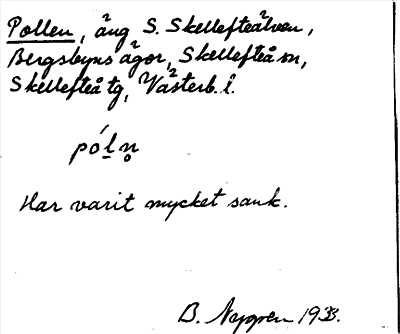 Pollen, äng S. Skellefteälven,
Bergsbyns ägor, Skellefteå sn,
Skellefteå tg, Västerb. l.
póln̥
Har varit mycket sank.
B. Nygren 1933.